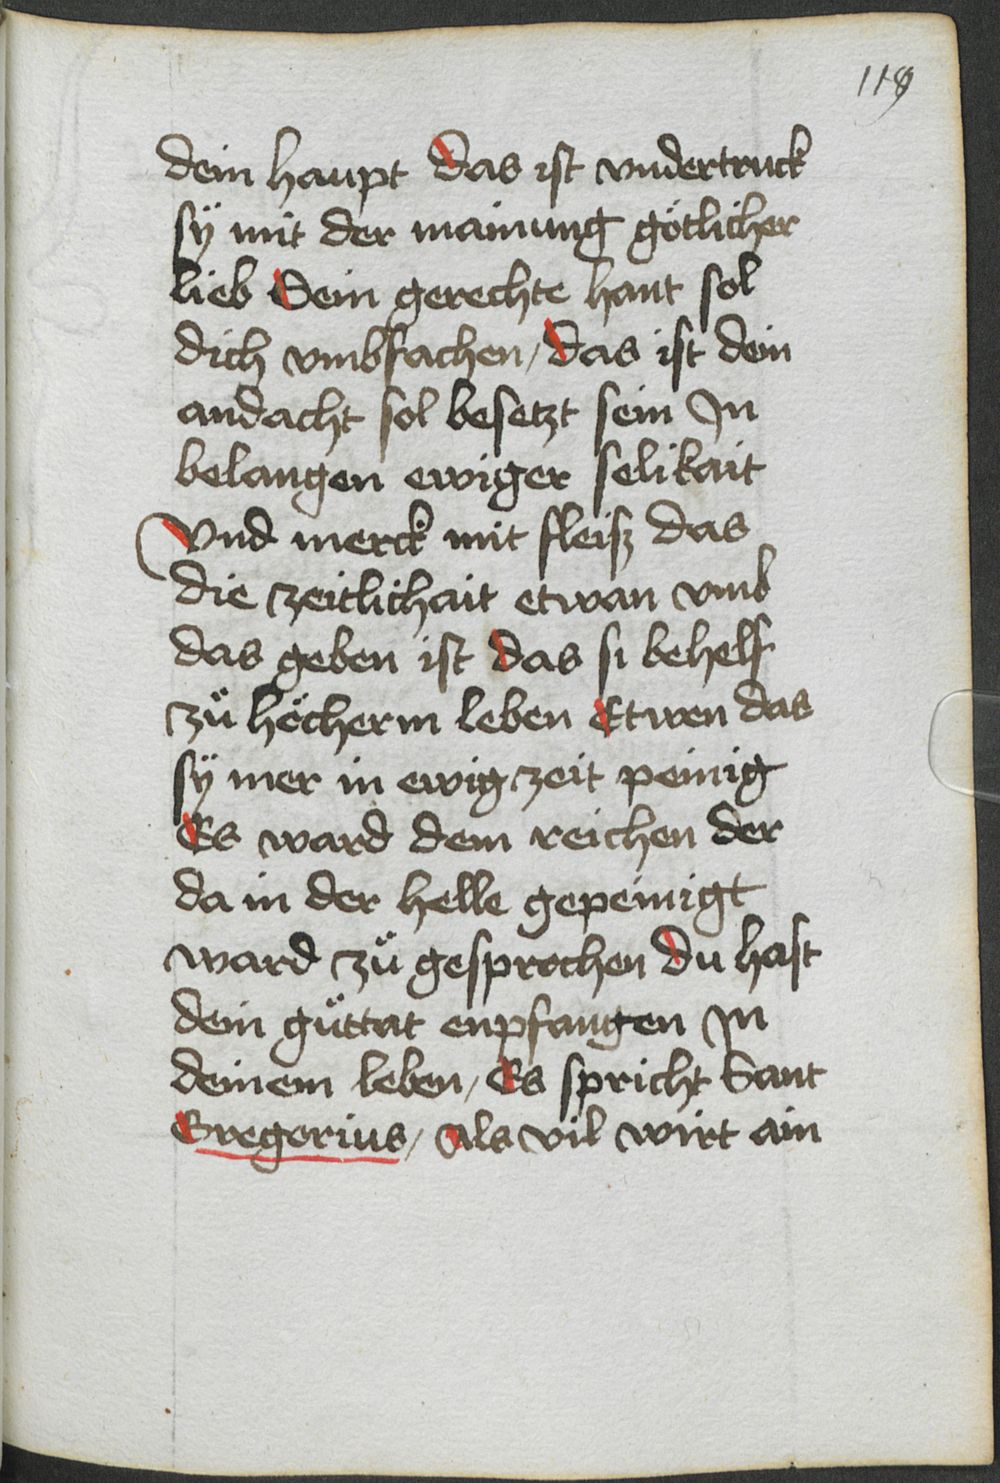 119
dein haupt Das ist vndertruck
sÿ mit der mainung götlicher
lieb Dein gerechte hant sol
dich vmbfachen / Das ist dein
andacht sol besetzt sein In
belangen ewiger selikait
Vnd merck mit fleisz das
die zeitlichait etwan vmb
das geben ist das si behelf
zuͤ höcherm leben Etwen das
sÿ mer in ewig zeit peinig
Es ward dem reichen der
da in der helle gepeinigt
ward zuͤ gesprochen Du hast
dein guͤttat enpfangen In
deinem leben / Es spricht Sant
Gregorius / Als vil wirt ain